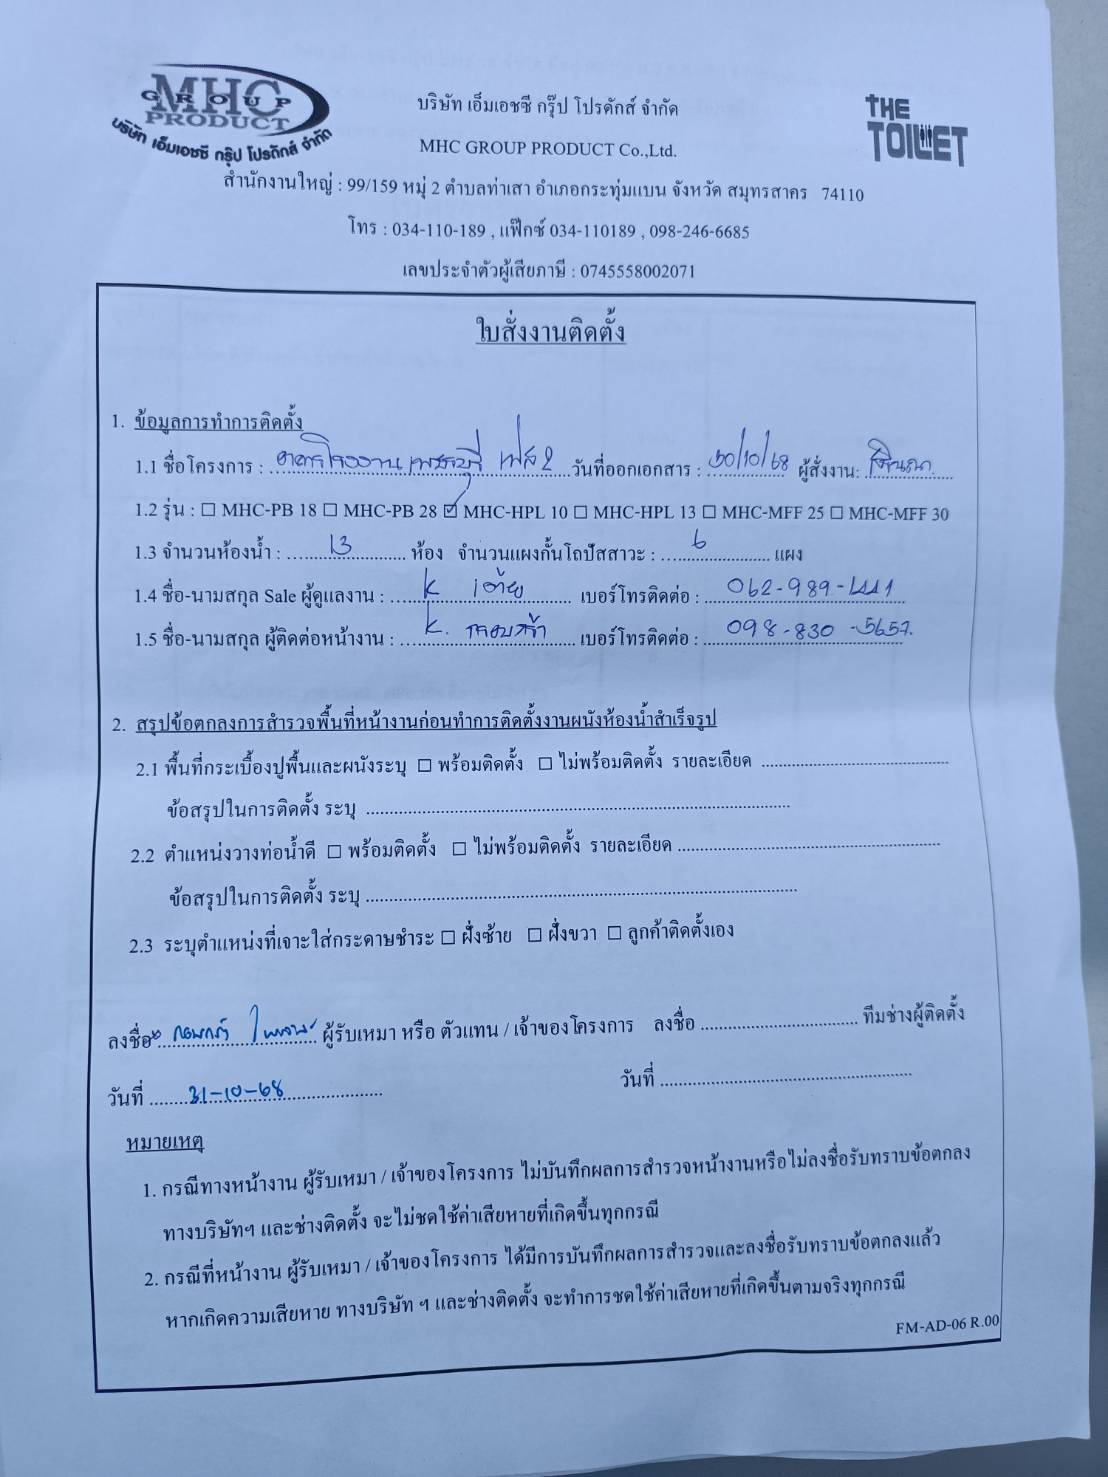 MHC
GROUP
PRODUCT
บริษัท เอ็มเอชซี กรุ๊ป โปรดักส์ จำกัด
THE
TOILET
บริษัท เอ็มเอชซี กรุ๊ป โปรดักส์ จำกัด
MHC GROUP PRODUCT Co.,Ltd.
สำนักงานใหญ่ : 99/159 หมู่ 2 ตำบลท่าเสา อำเภอกระทุ่มแบน จังหวัด สมุทรสาคร 74110
โทร : 034-110-189 , แฟ็กซ์ 034-110189 , 098-246-6685
เลขประจำตัวผู้เสียภาษี : 0745558002071
ใบสั่งงานติดตั้ง
1. ข้อมูลการทำการติดตั้ง
1.1 ชื่อโครงการ : อาคารโรงงานเพชรบุรี เฟส 2 วันที่ออกเอกสาร : 30/10/68 ผู้สั่งงาน:
1.2 รุ่น : ☐ MHC-PB 18 ☐ MHC-PB 28 ☑ MHC-HPL 10 ☐ MHC-HPL 13 ☐ MHC-MFF 25 ☐ MHC-MFF 30
1.3 จำนวนห้องน้ำ : 13 ห้อง จำนวนแผงกั้นโถปัสสาวะ : 6 แผง
1.4 ชื่อ-นามสกุล Sale ผู้ดูแลงาน : K เต้ย เบอร์โทรติดต่อ : 062-989-1441
1.5 ชื่อ-นามสกุล ผู้ติดต่อหน้างาน : K. เบอร์โทรติดต่อ : 098-830-5657
2. สรุปข้อตกลงการสำรวจพื้นที่หน้างานก่อนทำการติดตั้งงานผนังห้องน้ำสำเร็จรูป
2.1 พื้นที่กระเบื้องปูพื้นและผนังระบุ ☐ พร้อมติดตั้ง ☐ ไม่พร้อมติดตั้ง รายละเอียด
ข้อสรุปในการติดตั้ง ระบุ
2.2 ตำแหน่งวางท่อน้ำดี ☐ พร้อมติดตั้ง ☐ ไม่พร้อมติดตั้ง รายละเอียด
ข้อสรุปในการติดตั้ง ระบุ
2.3 ระบุตำแหน่งที่เจาะใส่กระดาษชำระ ☐ ฝั่งซ้าย ☐ ฝั่งขวา ☐ ลูกค้าติดตั้งเอง
ลงชื่อ ผู้รับเหมา หรือ ตัวแทน / เจ้าของโครงการ ลงชื่อ ทีมช่างผู้ติดตั้ง
วันที่ 31-10-68 วันที่
หมายเหตุ
1. กรณีทางหน้างาน ผู้รับเหมา / เจ้าของโครงการ ไม่บันทึกผลการสำรวจหน้างานหรือไม่ลงชื่อรับทราบข้อตกลง
ทางบริษัทฯ และช่างติดตั้ง จะไม่ชดใช้ค่าเสียหายที่เกิดขึ้นทุกกรณี
2. กรณีที่หน้างาน ผู้รับเหมา / เจ้าของโครงการ ได้มีการบันทึกผลการสำรวจและลงชื่อรับทราบข้อตกลงแล้ว
หากเกิดความเสียหาย ทางบริษัท ฯ และช่างติดตั้ง จะทำการชดใช้ค่าเสียหายที่เกิดขึ้นตามจริงทุกกรณี
FM-AD-06 R.00